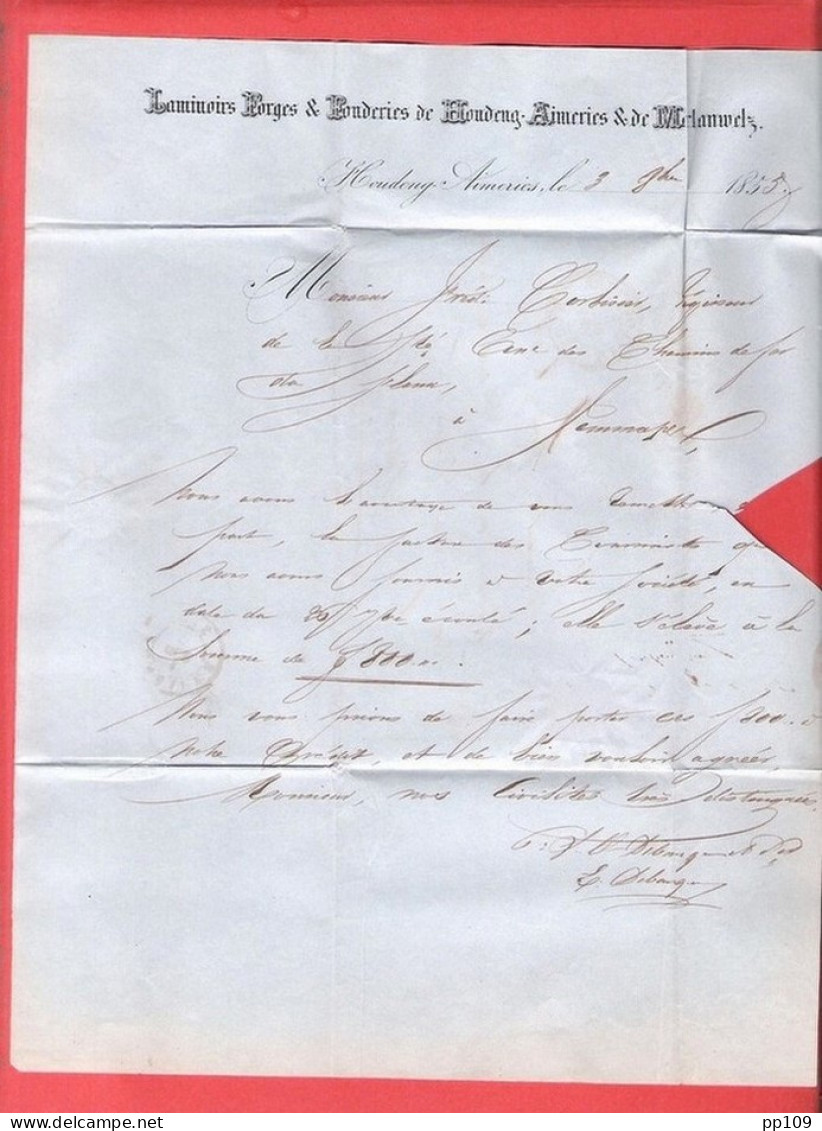 Laminoirs Forges & Fonderies de Houdeng-Aimeries & de M lanwelz.
Houdeng-Aimeries, le 3 9bre 1855
Monsieur Corbisier, Ingénieur
de la Sté Ane des Chemins de fer
du flenu,
à Jemmapes,
Nous avons l'avantage de vous remettre
part, la facture des
nous avons fournis à votre Société, en
date du 26 7bre écoulé; elle s'élève à la
Somme de f 800
Nous vous prions de faire porter ces f 800 à
notre Crédit, et de bien vouloir agréer,
Monsieur, nos Civilités très distinguées.
E. Debarge
pp109